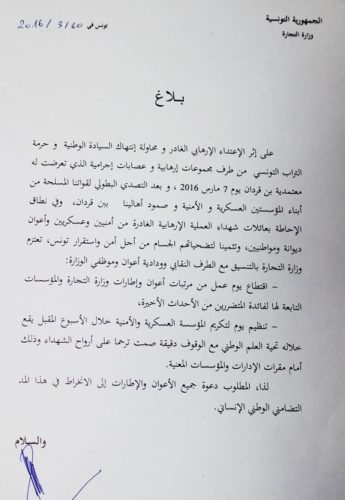 الجمهورية التونسية
وزارة التجارة
تونس في 2016/3/10
بـلاغ
على إثر الإعتداء الإرهابي الغادر و محاولة إنتهاك السيادة الوطنية و حرمة
التراب التونسي من طرف مجموعات إرهابية و عصابات إجرامية الذي تعرضت له
معتمدية بن قردان يوم 7 مارس 2016 ، و بعد التصدي البطولي لقواتنا المسلحة من
أبناء المؤسستين العسكرية و الأمنية و صمود أهالينا بين قردان، وفي نطاق
الإحاطة بعائلات شهداء العملية الإرهابية الغادرة من أمنيين وعسكريين وأعوان
ديوانة ومواطنيين، وتثمينا لتضحياتهم الجسام من أجل أمن واستقرار تونس، تعتزم
وزارة التجارة بالتنسيق مع الطرف النقابي وودادية أعوان وموظفي الوزارة:
- اقتطاع يوم عمل من مرتبات أعوان وإطارات وزارة التجارة والمؤسسات
التابعة لها لفائدة المتضررين من الأحداث الأخيرة،
- تنظيم يوم لتكريم المؤسسة العسكرية والأمنية خلال الأسبوع المقبل يقع
خلاله تحية العلم الوطني مع الوقوف دقيقة صمت ترحما على أرواح الشهداء وذلك
أمام مقرات الإدارات والمؤسسات المعنية.
لذا، المطلوب دعوة جميع الأعوان والإطارات إلى الانخراط في هذا المد
التضامني الوطني الإنساني.
والسـلام